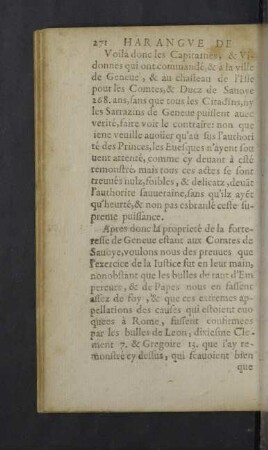 271 HARANGVE DE
Voila donc les Capitaines, & Vi-
donnes qui ont commandé, & à la ville
de Geneue, & au chasteau de l'Isle
pour les Comtes, & Ducz de Sauoye
268. ans, sans que tous les Citadins, ny
les Sarrazins de Geneue puissent auec
verité, faire voir le contraire: non que
ie ne veuille auoüer qu'au sus l'authori-
té des Princes, les Euesques n'ayent sou
uent attenté, comme cy deuant à esté
remonstré, mais tous ces actes se sont
treuués nulz, foibles, & delicatz, deuãt
l'authorité souueraine, sans qu'ilz ayẽt
qu'heurté, & non pas esbranlé ceste su-
preme puissance.
Apres donc la proprieté de la forte-
resse de Geneue estant aux Comtes de
Sauoye, voulons nous des preuues que
l'exercice de la Iustice fut en leur main,
nonobstant que les bulles de tant d'Em
pereurs, & de Papes nous en fassent
assez de foy, & que ces extremes ap-
pellations des causes qui estoient euo
quees à Rome, fussent confirmees
par les bulles de Leon, dixiesme Cle-
ment 7. & Gregoire 13. que i'ay re-
monstré cy dessus, qui scauoient bien
que